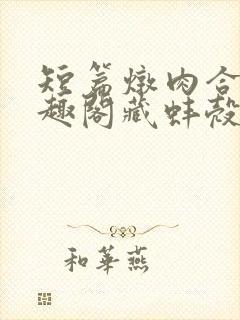 短篇燉肉合
趣閣藏蚌殼
和華燕